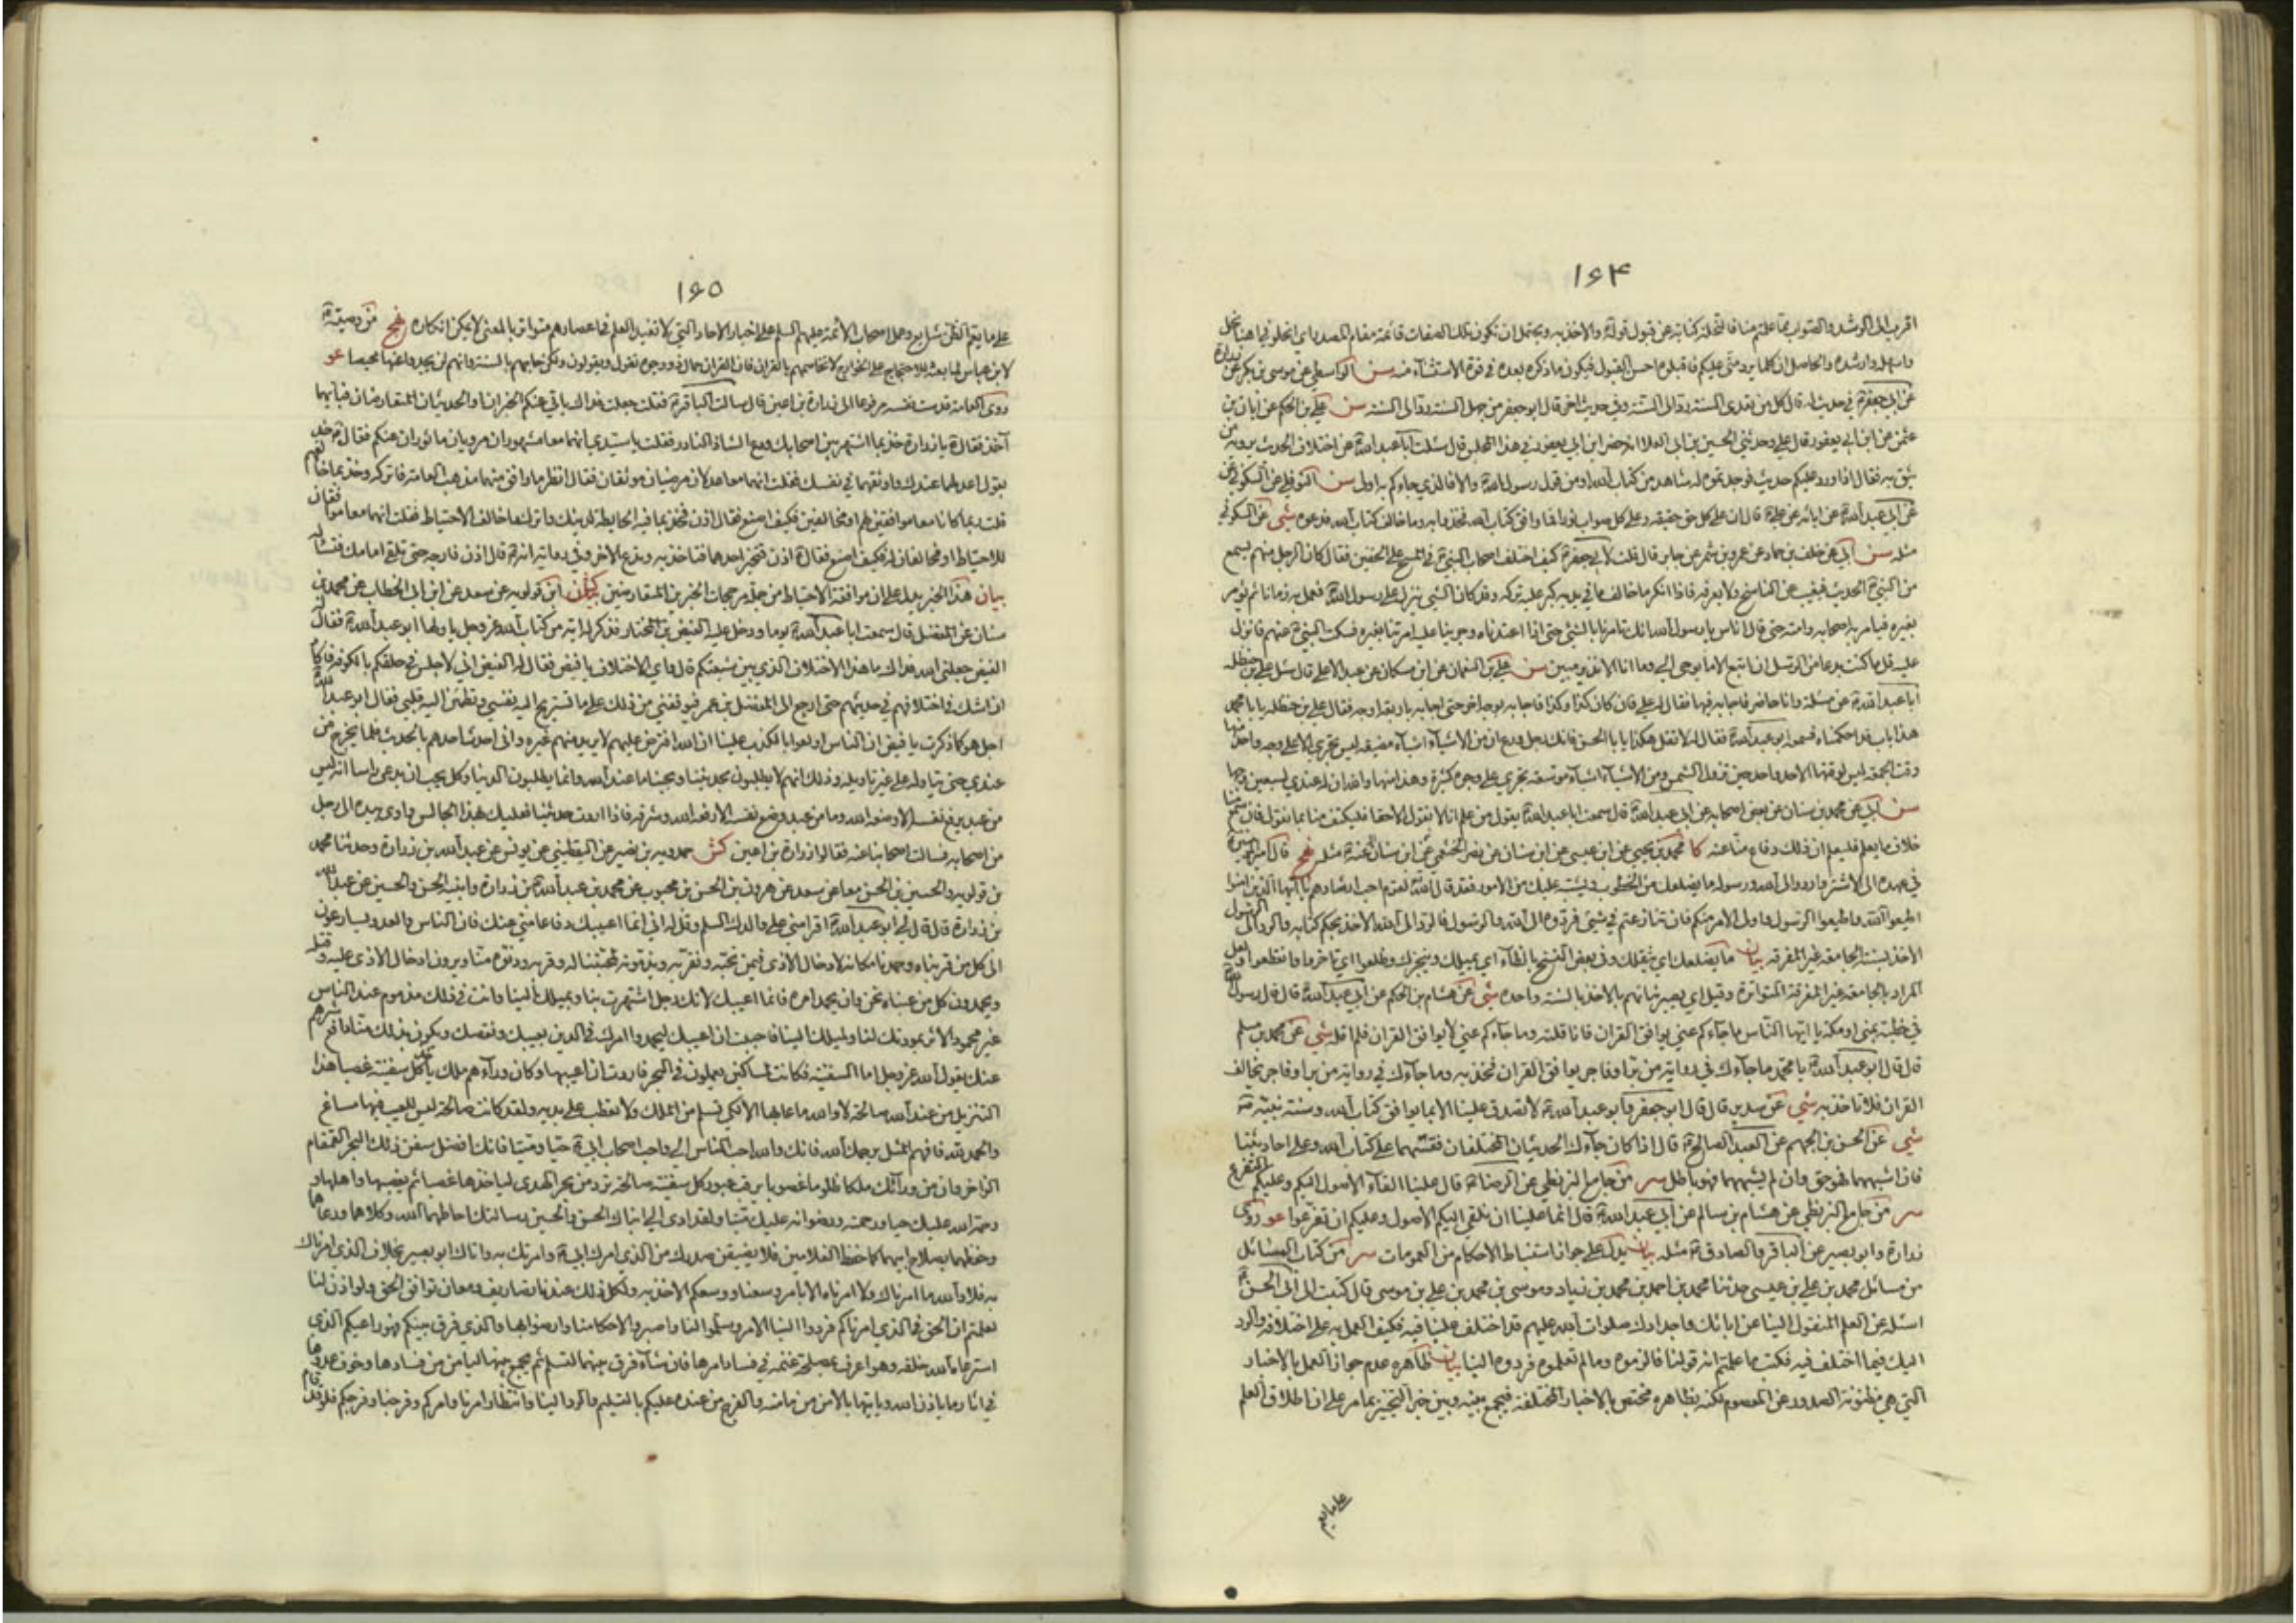 ۱۶۴
اقرب الى الرشد والصواب مما علمتم منا فالنحلة كناية عن قبول قوله والاخذ به ويحتمل ان تكون تلك الصفات قائمة مقام المصدر اي انحلوني اهنأ نحل
واسهله وارشده والحاصل ان كلما يرد منى عليكم فاقبلوه احسن القبول فيكون ما ذكره بعده في قوة الاستثناء منه سن الواسطي عن موسى بن بكر عن زرارة
عن ابي جعفر ع في حديث له قال كل من تعدى السنة رد الى السنة وفي حديث اخر قال ابو جعفر من جهل السنة رد الى السنة سن علي بن الحكم عن ابان بن
عثمن عن ابن ابي يعفور قال علي وحدثني الحسين بن ابي العلا انه حضر ابن ابي يعفور في هذا المجلس قال سئلت ابا عبد الله ع عن اختلاف الحديث يرويه من
يثق به فقال اذا ورد عليكم حديث فوجدتموه له شاهد من كتاب الله او من قول رسول الله والا فالذي جاءكم به اولى سن النوفلي عن السكوني عن
عن ابي عبد الله ع عن ابائه عن علي ع قال ان على كل حق حقيقة وعلى كل صواب نورا فما وافق كتاب الله فخذوا به وما خالف كتاب الله فدعوه شي عن السكوني
مثله سن ابي عن خلف بن حماد عن عمرو بن شمر عن جابر قال قلت لابي جعفر ع كيف اختلف اصحاب النبي ص في المسح على الخفين فقال كان الرجل منهم يسمع
من النبي ص الحديث فيغيب عن الناسخ ولا يعرفه فاذا انكر ما خالف ما في يديه كبر عليه تركه وقد كان الشئ ينزل على رسول الله ص فعمل به زمانا ثم يؤمر
بغيره فيامر به اصحابه وامته حتى قال اناس يا رسول الله انك تامرنا بالشئ حتى اذا اعتدناه وجرينا عليه امرتنا بغيره فسكت النبي ص عنهم فانزل
عليه قل ما كنت بدعا من الرسل ان اتبع الا ما يوحى الي وما انا الا نذير مبين سن علي بن النعمان عن ابن مسكان عن عبد الاعلى قال سئل علي بن حنظله
ابا عبد الله ع عن مسئلة وانا حاضر فاجابه فيها فقال له علي فان كان كذا وكذا فاجابه بوجه اخر حتى اجابه باربعة اوجه فقال علي بن حنظله يا با محمد
هذا باب قد احكمناه فسمعه ابو عبد الله ع فقال له لا تقل هكذا يا با الحسن فانك رجل ورع ان من الاشياء اشياء مضيقه ليس تجري الا على وجه واحد منها
وقت الجمعه ليس لوقتها الا حد واحد حين تزول الشمس ومن الاشياء اشياء موسعه تجري على وجوه كثيرة وهذا منها والله ان له عندي لسبعين وجها
سن ابي عن محمد بن سنان عن بعض اصحابه عن ابي عبد الله ع قال سمعت ابا عبد الله ع يقول من علم انا لا نقول الا حقا فليكتف منا بما نقول فان سمع منا
خلاف ما يعلم فليعلم ان ذلك دفاع منا عنه كا محمد بن يحيى عن ابن عيسى عن ابن سنان عن نصر الخثعمي عن ابن سنان عنه ع مثله نهج قال امير المؤمنين ع
في عهده الى الاشتر واردد الى الله ورسوله ما يضلعك من الخطوب ويشتبه عليك من الامور فقد قال الله لقوم احب ارشادهم يا ايها الذين امنوا
اطيعوا الله واطيعوا الرسول واولى الامر منكم فان تنازعتم في شئ فردوه الى الله والرسول فالرد الى الله الاخذ بمحكم كتابه والرد الى الرسول
الاخذ بسنته الجامعة غير المفرقه بيان ما يضلعك اي يثقلك وفي بعض النسخ بالظاء اي يميلك ويعجزك وظلعوا اي تاخروا وانقطعوا ولعل
المراد بالجامعة غير المفرقة المتواترة وقيل اي يصير نياتهم بالاخذ بالسنة واحده شي عن هشام بن الحكم عن ابي عبد الله ع قال قال رسول الله ص
في خطبة بمنى او مكة يا ايها الناس ما جاءكم عني يوافق القران فانا قلته وما جاءكم عني لا يوافق القران فلم اقله شي عن محمد بن مسلم
قال قال ابو عبد الله ع يا محمد ما جاءك في رواية من بر او فاجر يوافق القران فخذ به وما جاءك في رواية من بر او فاجر يخالف
القران فلا تاخذ به شي عن سدير قال قال ابو جعفر وابو عبد الله ع لا تصدق علينا الا بما يوافق كتاب الله وسنة نبيه ص
شي عن الحسن بن الجهم عن العبد الصالح ع قال اذا كان جاءك الحديثان المختلفان فقسهما على كتاب الله وعلى احاديثنا
فان اشبههما فهو حق وان لم يشبههما فهو باطل سر من جامع البزنطي عن الرضا ع قال علينا القاء الاصول اليكم وعليكم التفرع
سر من جامع البزنطي عن هشام بن سالم عن ابي عبد الله ع قال انما علينا ان نلقي اليكم الاصول وعليكم ان تفرعوا غو روى
زرارة وابو بصير عن الباقر والصادق ع مثله بيان يدل على جواز استنباط الاحكام من العمومات سر من كتاب المسائل
من مسائل محمد بن علي بن عيسى حدثنا محمد بن احمد بن محمد بن زياد وموسى بن محمد بن علي بن موسى قال كتبت الى ابي الحسن ع
اسئله عن العلم المنقول الينا عن ابائك واجدادك صلوات الله عليهم قد اختلف علينا فيه فكيف العمل به على اختلافه والرد
اليك فيما اختلف فيه فكتب ما علمتم انه قولنا فالزموه وما لم تعلموه فردوه الينا بيان ظاهره عدم جواز العمل بالاخبار
التي هي مظنونة الصدور عن المعصوم لكنه بظاهره مختص بالاخبار المختلفة فيجمع بينه وبين خبر التخيير بما مر على ان اطلاق العلم
على ما يعم
۱۶۵
على ما يعم الظن شايع وعمل اصحاب الائمة عليهم السلم على اخبار الاحاد التي لا تفيد العلم في اعصارهم متواتر بالمعنى لا يمكن انكاره نهج من وصيته ع
لابن عباس لما بعثه للاحتجاج على الخوارج لا تخاصمهم بالقران فان القران حمال ذو وجوه تقول ويقولون ولكن حاجهم بالسنة فانهم لن يجدوا عنها محيصا غو
روى العلامة قدست نفسه مرفوعا الى زرارة بن اعين قال سالت الباقر ع فقلت جعلت فداك ياتي عنكم الخبران او الحديثان المتعارضان فبايهما
آخذ فقال ع يا زرارة خذ بما اشتهر بين اصحابك ودع الشاذ النادر فقلت يا سيدي انهما معا مشهوران مرويان ماثوران عنكم فقال ع خذ
بقول اعدلهما عندك واوثقهما في نفسك فقلت انهما معا عدلان مرضيان موثقان فقال انظر ما وافق منهما مذهب العامة فاتركه وخذ بما خالفهم
قلت ربما كانا معا موافقين لهم او مخالفين فكيف اصنع فقال اذن فخذ بما فيه الحايطة لدينك واترك ما خالف الاحتياط فقلت انهما معا موافقان
للاحتياط او مخالفان له فكيف اصنع فقال ع اذن فتخير احدهما فتاخذ به وتدع الاخر وفي رواية انه ع قال اذن فارجه حتى تلقى امامك فتسئله
بيان هذا الخبر يدل على ان موافقة الاحتياط من جملة مرجحات الخبرين المتعارضين كش ابن قولويه عن سعد عن ابن ابي الخطاب عن محمد بن
سنان عن المفضل قال سمعت ابا عبد الله ع يوما ودخل عليه الفيض بن المختار فذكر له اية من كتاب الله عز وجل ياولها ابو عبد الله ع فقال له
الفيض جعلني الله فداك ما هذا الاختلاف الذي بين شيعتكم قال واي الاختلاف يا فيض فقال له الفيض اني لاجلس في حلقهم بالكوفه فاكاد
ان اشك في اختلافهم في حديثهم حتى ارجع الى المفضل بن عمر فيوقفني من ذلك على ما تستريح اليه نفسي وتطمئن اليه قلبي فقال ابو عبد الله ع
اجل هو كما ذكرت يا فيض ان الناس اولعوا بالكذب علينا ان الله افترض عليهم لا يريد منهم غيره واني احدث احدهم بالحديث فلا يخرج من
عندي حتى يتاوله على غير تاويله وذلك انهم لا يطلبون بحديثنا وبحبنا ما عند الله وانما يطلبون الدنيا وكل يحب ان يدعى راسا انه ليس
من عبد يرفع نفسه الا وضعه الله وما من عبد وضع نفسه الا رفعه الله وشرفه فاذا اردت حديثنا فعليك بهذا الجالس واومى بيده الى رجل
من اصحابه فسالت اصحابنا عنه فقالوا زرارة بن اعين كش حمدويه بن نصير عن اليقطيني عن يونس عن عبد الله بن زرارة وحدثنا محمد
بن قولويه والحسين بن الحسن معا عن سعد عن هرون بن الحسن بن محبوب عن محمد بن عبد الله بن زرارة وابنيه الحسن والحسين عن عبد الله
بن زرارة قال قال لي ابو عبد الله ع اقرا مني على والدك السلم وقل له اني انما اعيبك دفاعا مني عنك فان الناس والعدو يسارعون
الى كل من قربناه وحمدنا مكانه لادخال الاذى فيمن نحبه ونقربه ويذمونه لمحبتنا له وقربه ودنوه منا ويرون ادخال الاذى عليه وقتله
ويحمدون كل من عبناه نحن وان يحمد امره فانما اعيبك لانك رجل اشتهرت بنا وبميلك الينا وانت في ذلك مذموم عند الناس
غير محمود الاثر بمودتك لنا ولميلك الينا فاحببت ان اعيبك ليحمدوا امرك في الدين بعيبك ونقصك ويكون بذلك منا دافع شرهم
عنك يقول الله عز وجل اما السفينة فكانت لمساكين يعملون في البحر فاردت ان اعيبها وكان وراءهم ملك ياخذ كل سفينة غصبا هذا
التنزيل من عند الله صالحة لا والله ما عابها الا لكي تسلم من الملك ولا تعطب على يديه ولقد كانت صالحة ليس للعيب فيها مساغ
والحمد لله فافهم المثل يرحمك الله فانك والله احب الناس الي واحب اصحاب ابي ع حيا وميتا فانك افضل سفن ذلك البحر القمقام
الزاخر وان من ورائك ملكا ظلوما غصوبا يرقب عبور كل سفينة صالحة ترد من بحر الهدى لياخذها غصبا ثم يغصبها واهلها و
رحمة الله عليك حيا ورحمته ورضوانه عليك ميتا ولقد ادى الي ابناك الحسن والحسين رسالتك احاطهما الله وكلاهما ورعاهما
وحفظهما بصلاح ابيهما كما حفظ الغلامين فلا يضيقن صدرك من الذي امرك ابي ع وامرتك به واتاك ابو بصير بخلاف الذي امرناك
به فلا والله ما امرناك ولا امرناه الا بامر وسعنا ووسعكم الاخذ به ولكل ذلك عندنا تصاريف ومعان توافق الحق ولو اذن لنا
لعلمتم ان الحق في الذي امرناكم فردوا الينا الامر وسلموا لنا واصبروا لاحكامنا وارضوا بها والذي فرق بينكم فهو راعيكم الذي
استرعاه الله خلقه وهو اعرف بمصلحة غنمه في فساد امرها فان شاء فرق بينها لتسلم ثم يجمع بينها ليامن من فسادها وخوف عدوها
في اثار ما ياذن الله وياتيها بالامن من مامنه والفرج من عنده عليكم بالتسليم والرد الينا وانتظار امرنا وامركم وفرجنا وفرجكم فلو قد قام